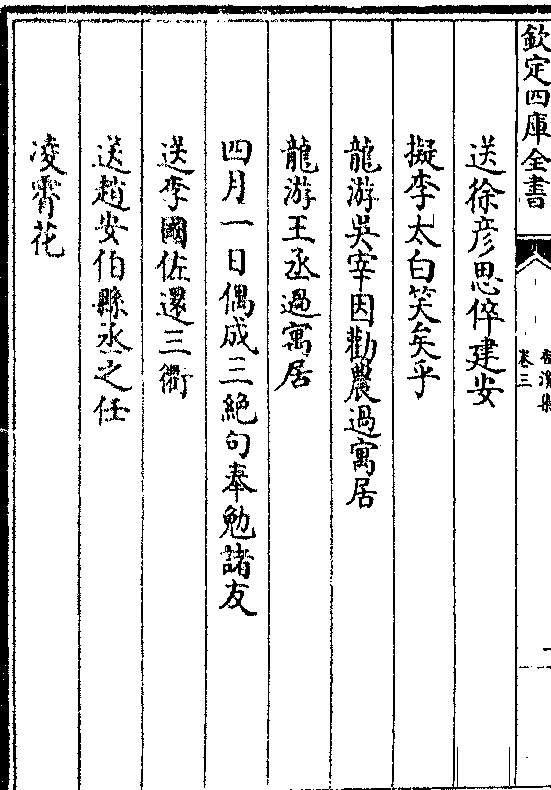 欽定四庫全書
卷三
送徐彦思倅建安
擬李太白笑矣乎
龍游吳宰因勸農過寓居
龍游王丞過寓居
四月一日偶成三絶句奉勉諸友
送李國佐還三衢
送趙安伯縣丞之任
凌霄花